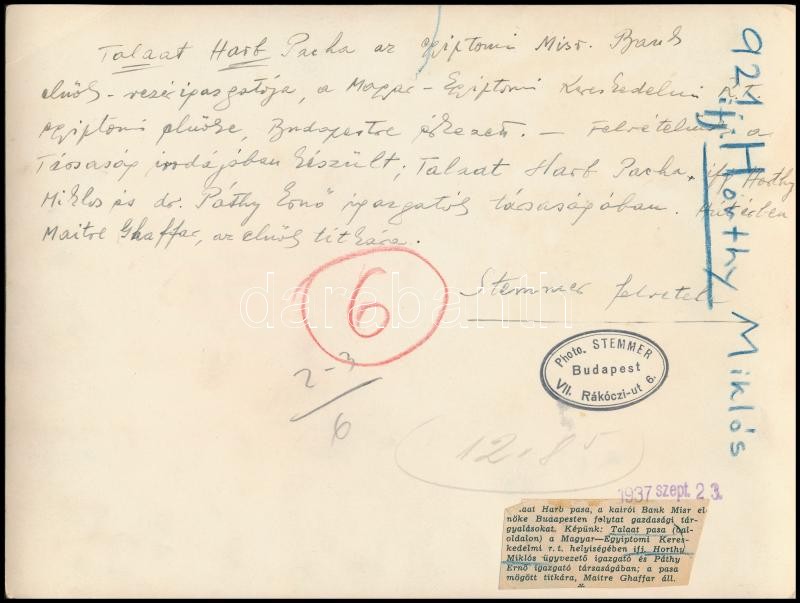 Talaat Harb Pacha az egiptomi Misr. Bank
elnök-vezérigazgatója, a Magyar-Egiptomi Kereskedelmi R.T.
egiptomi elnöke, Budapestre érkezett. — Felvételünk a
Társaság irodájában készült; Talaat Harb Pacha, ifj Horthy
Miklós és dr. Páthy Ernő igazgatók társaságában. Háttérben
Maitre Ghaffar, az elnök titkára.
Stemmer felvétel
6
2-3
6
12.85
Photo. STEMMER
Budapest
VII. Rákóczi-ut 6.
921 ifj Horthy Miklós
1937 szept. 23.
laat Harb pasa, a kairói Bank Misr el-
nöke Budapesten folytat gazdasági tár-
gyalásokat. Képünk: Talaat pasa (bal-
oldalon) a Magyar—Egyiptomi Keres-
kedelmi r. t. helyiségében ifj. Horthy
Miklós ügyvezető igazgató és Páthy
Ernő igazgató társaságában; a pasa
mögött titkára, Maitre Ghaffar áll.
darabanth